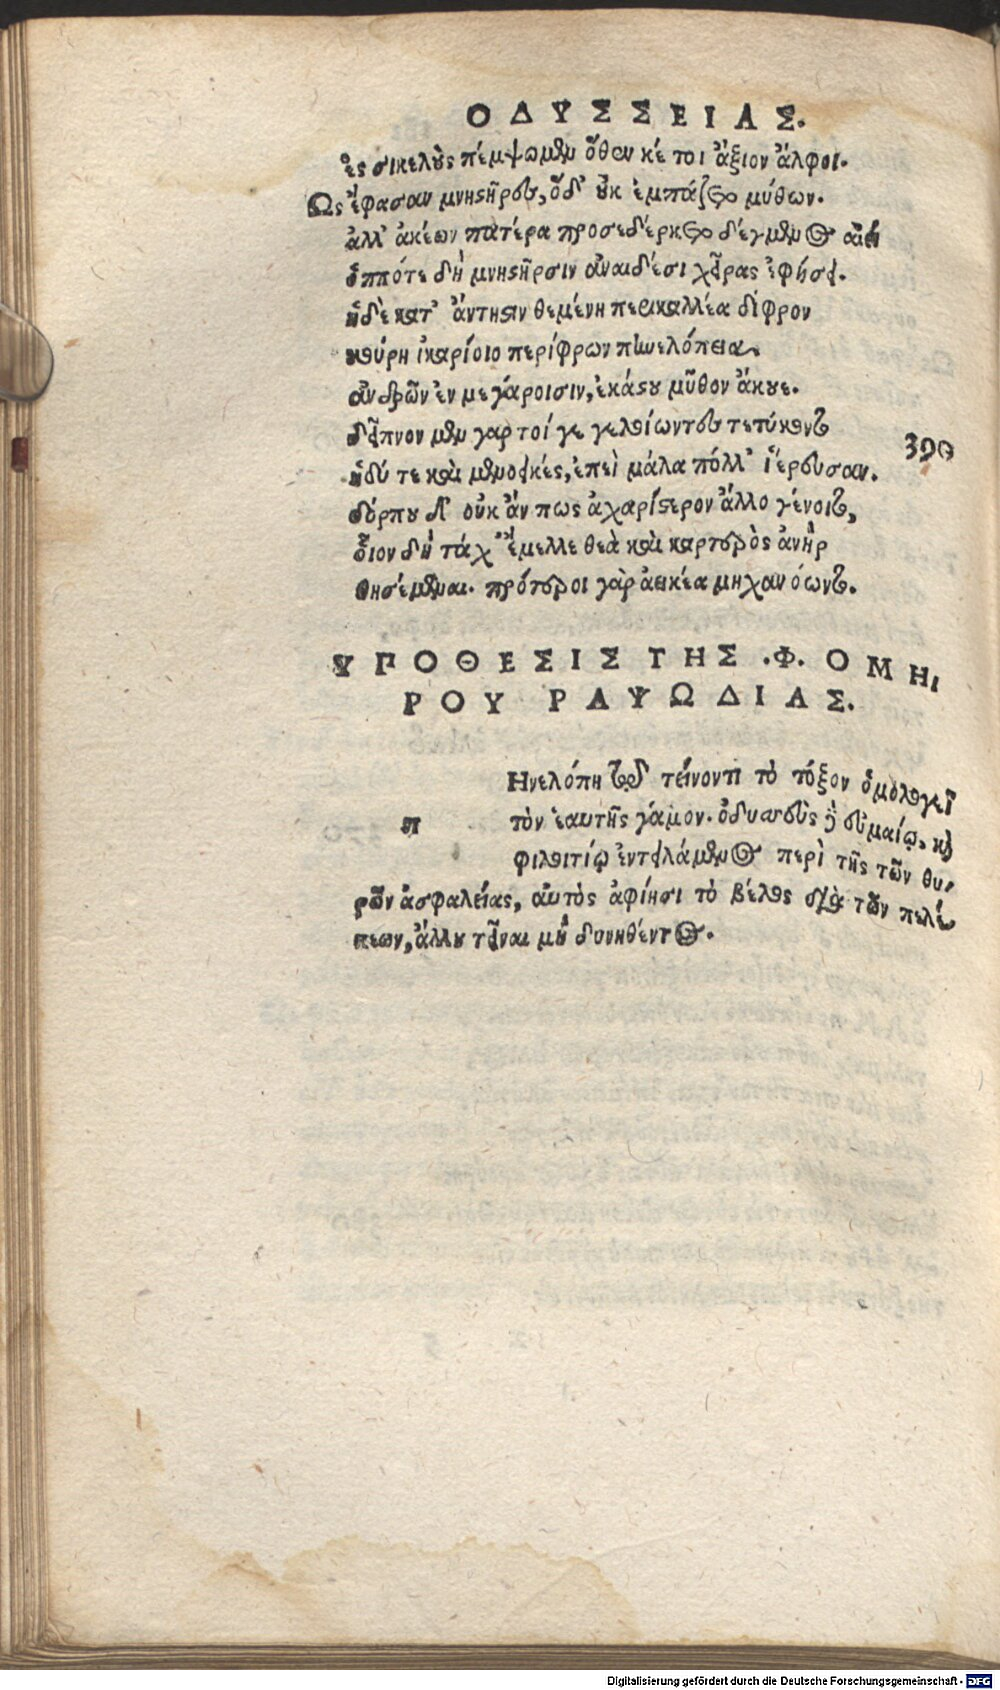 ΟΔΥΣΣΕΙΑΣ.
ἐς σικελοὺς πέμψωμεν ὅθεν κέ τοι ἄξιον ἄλφοι.
Ως ἔφασαν μνηστῆρες, ὅδ' οὐκ ἐμπάζετο μύθων.
ἀλλ' ἀκέων πατέρα προσεδέρκετο δέγμενος αἰεὶ
ὁππότε δὴ μνηστῆρσιν ἀναιδέσι χεῖρας ἐφήσει.
ἡδὲ κατ' ἄντηστιν θεμένη περικαλλέα δίφρον
κούρη ἰκαρίοιο περίφρων πηνελόπεια,
ἀνδρῶν ἐν μεγάροισιν, ἑκάστου μῦθον ἄκουε.
δεῖπνον μὲν γαρ τοί γε γελοίωντες τετύκοντο
390
ἡδύ τε καὶ μενοεικές, ἐπεὶ μάλα πόλλ' ἱέρευσαν.
δόρπου δ' οὐκ ἄν πως ἀχαρίστερον ἄλλο γένοιτο,
οἷον δὴ τάχ' ἔμελλε θεὰ καὶ καρτερὸς ἀνὴρ
θησέμεναι. πρότεροι γὰρ ἀεικέα μηχανόωντο.
ΥΠΟΘΕΣΙΣ ΤΗΣ .Φ. ΟΜΗ
ΡΟΥ ΡΑΨΩΔΙΑΣ.
Ηνελόπη τῷ τείνοντι τὸ τόξον ὁμολογεῖ
π τὸν ἑαυτῆς γάμον. ὀδυσσεὺς δὲ εὐμαίῳ, καὶ
φιλοιτίῳ ἐντειλάμενος περὶ τῆς τῶν θυ-
ρῶν ἀσφαλείας, αὐτὸς ἀφίησι τὸ βέλος διὰ τῶν πελέ
κεων, ἄλλου τεῖναι μὴ δυνηθέντος.
Digitalisierung gefördert durch die Deutsche Forschungsgemeinschaft - DFG